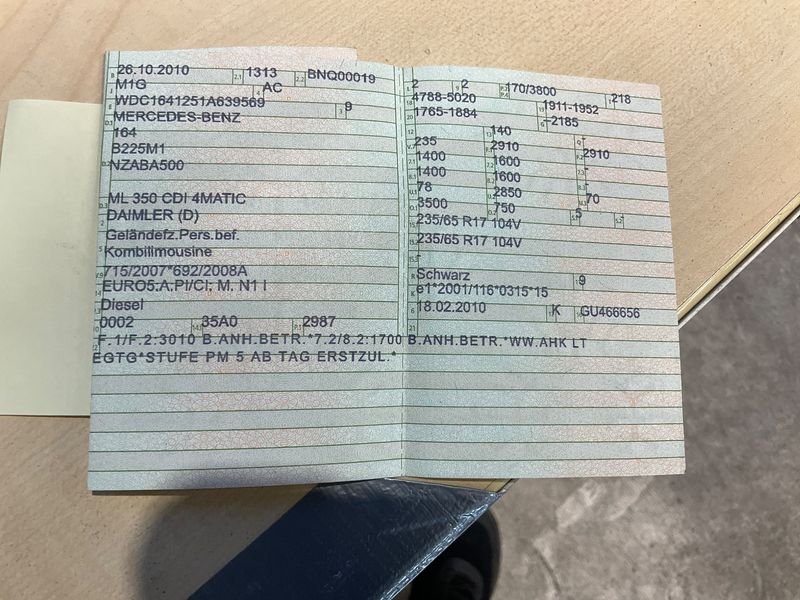 26.10.2010 1313 BNQ00019
M1G AC
WDC1641251A639569 9
MERCEDES-BENZ
164
B225M1
NZABA500
ML 350 CDI 4MATIC
DAIMLER (D)
Geländefz.Pers.bef.
Kombilimousine
715/2007*692/2008A
EURO5;A,PI/CI, M, N1 I
Diesel
0002 35A0 2987
2 2 170/3800 218
4788-5020 1911-1952
1765-1884 -2185
140
235 2910 2910
1400 1600 -
1400 1600 -
78 2850 70
3500 750 5
235/65 R17 104V
235/65 R17 104V
-
Schwarz 9
e1*2001/116*0315*15
18.02.2010 K GU466656
F.1/F.2:3010 B.ANH.BETR.*7.2/8.2:1700 B.ANH.BETR.*WW.AHK LT
EGTG*STUFE PM 5 AB TAG ERSTZUL.*